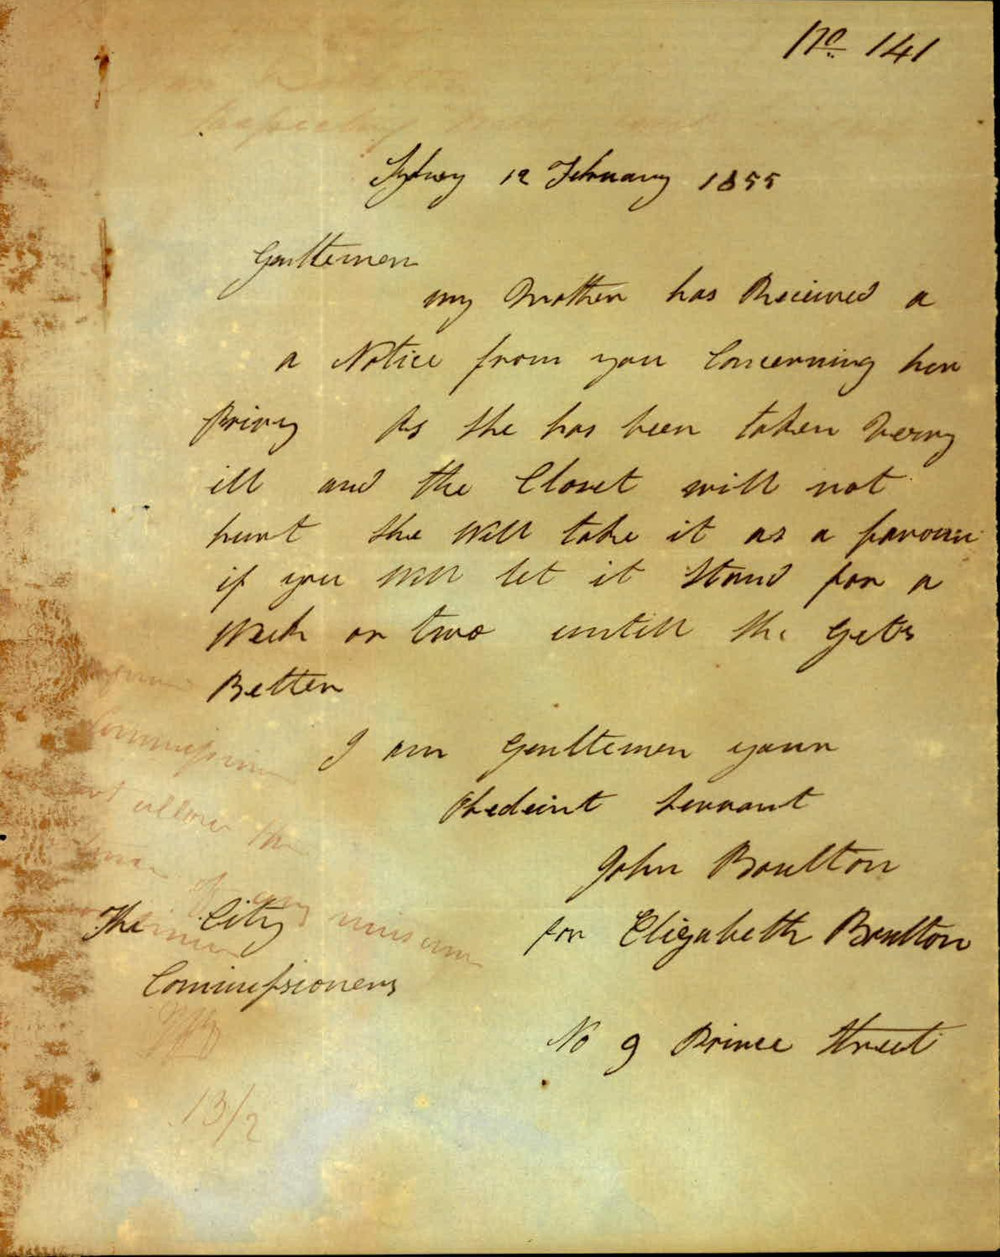 No 141
Sydney 12 February 1855
Genltemen
my Mother has Received a
a Notice from you Concerning her
Privy As She has been taken Very
ill and the Closet will not
hurt She Will take it as a favour
if you Will let it Stand for a
Week or two untill She Gets
Better
I am Genltemen your
Obedeint Servant
John Boulton
for Elizabeth Boulton
The City
Commissioners
No 9 Prince Street
13/2